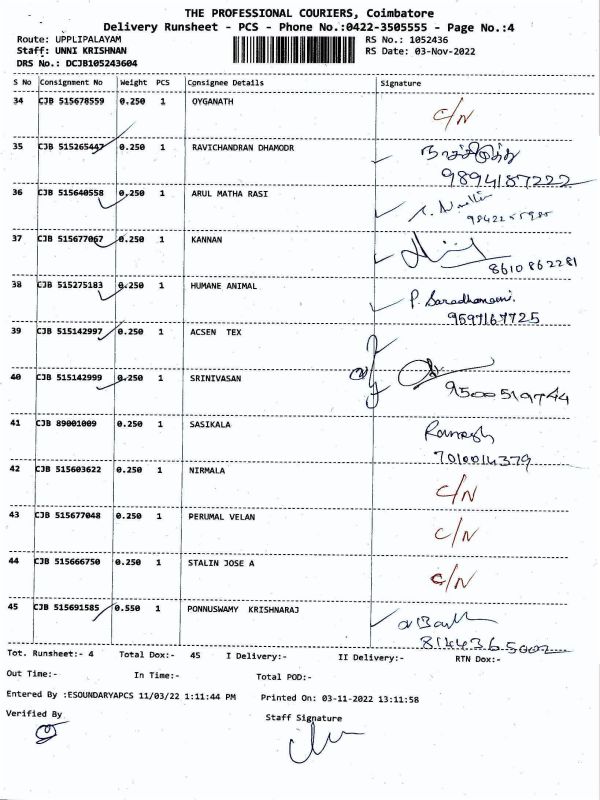 THE PROFESSIONAL COURIERS, Coimbatore
Delivery Runsheet - PCS - Phone No.:0422-3505555 - Page No.:4
Route: UPPLIPALAYAM RS No.: 1052436
Staff: UNNI KRISHNAN RS Date: 03-Nov-2022
DRS No.: DCJB105243604
S No Consignment No Weight PCS Consignee Details Signature
34 CJB 515678559 0.250 1 OYGANATH C/N
35 CJB 515265447 0.250 1 RAVICHANDRAN DHAMODR
9894187222
36 CJB 515640558 0.250 1 ARUL MATHA RASI
37 CJB 515677067 0.250 1 KANNAN
8610862281
38 CJB 515275183 0.250 1 HUMANE ANIMAL
9597167725
39 CJB 515142997 0.250 1 ACSEN TEX
40 CJB 515142999 0.250 1 SRINIVASAN
9500519744
41 CJB 89001009 0.250 1 SASIKALA Ramesh
7010014379
42 CJB 515603622 0.250 1 NIRMALA C/N
43 CJB 515677048 0.250 1 PERUMAL VELAN C/N
44 CJB 515666750 0.250 1 STALIN JOSE A C/N
45 CJB 515691585 0.550 1 PONNUSWAMY KRISHNARAJ
Tot. Runsheet:- 4 Total Dox:- 45 I Delivery:- II Delivery:- RTN Dox:-
Out Time:- In Time:- Total POD:-
Entered By :ESOUNDARYAPCS 11/03/22 1:11:44 PM Printed On: 03-11-2022 13:11:58
Verified By Staff Signature